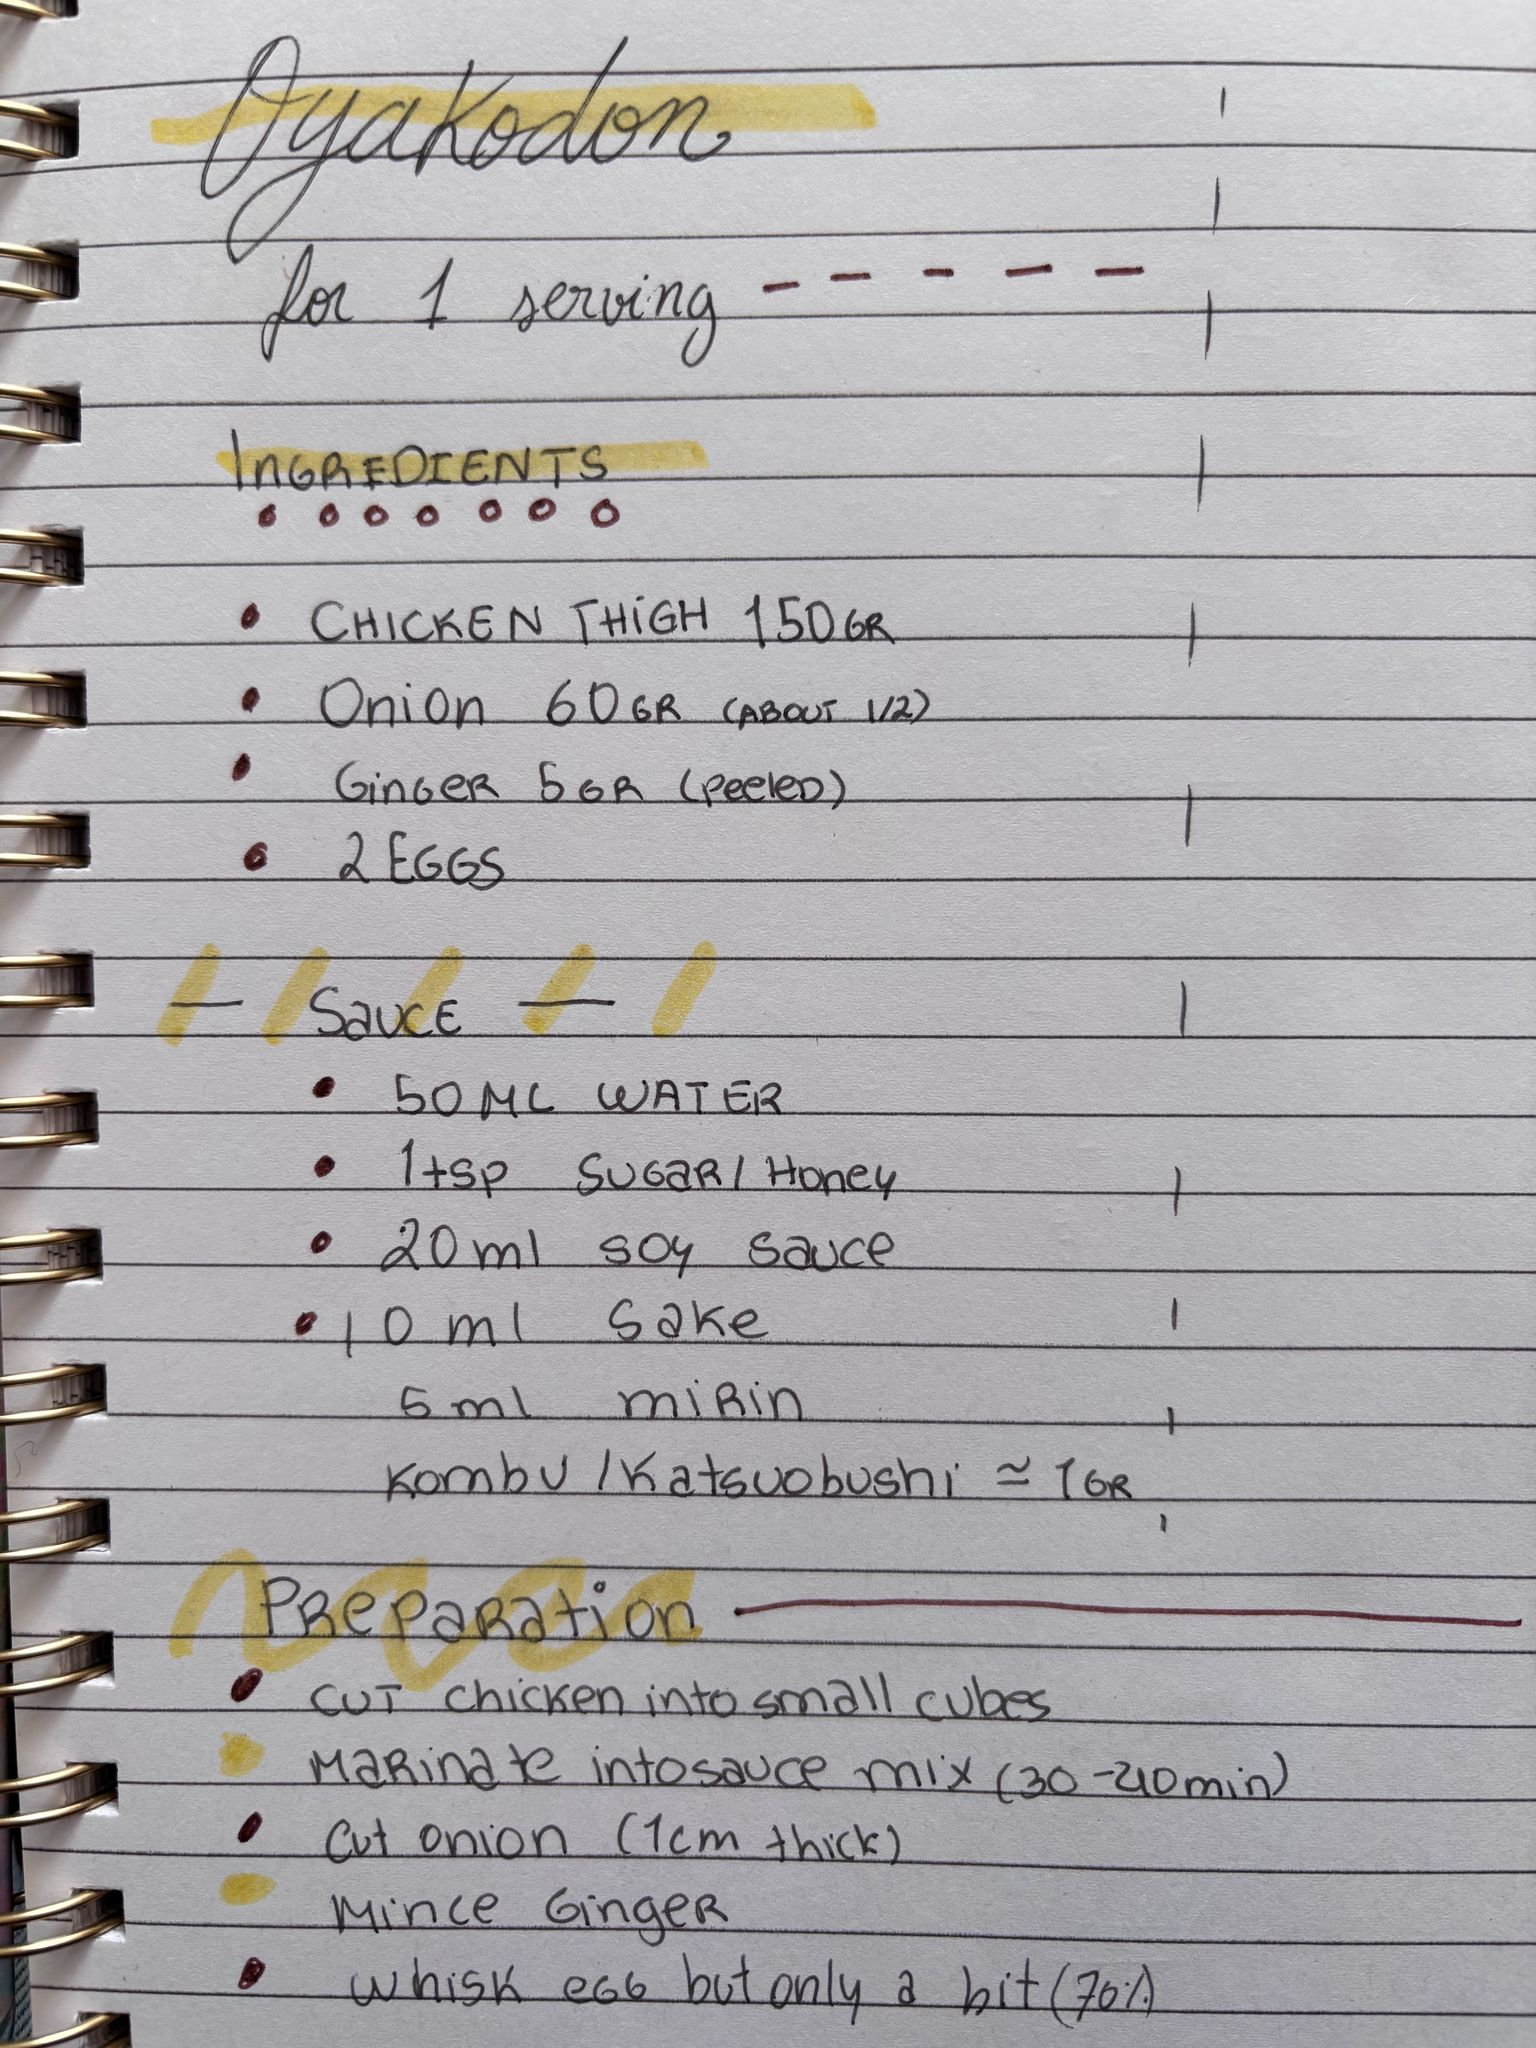 Oyakodon
for 1 serving
INGREDIENTS
CHICKEN THIGH 150GR
Onion 60GR (ABOUT 1/2)
GinGER 5GR (PeeleD)
2 EGGS
Sauce
50ML WATER
1tsp SUGAR/Honey
20ml soy sauce
10 ml sake
5ml miRin
Kombu/Katsuobushi ≃ 1GR
PRePaRation
CUT chicken into small cubes
MaRinate into sauce mix (30-40min)
Cut onion (1cm thick)
Mince GingeR
Whisk eGG but only a bit (70%)